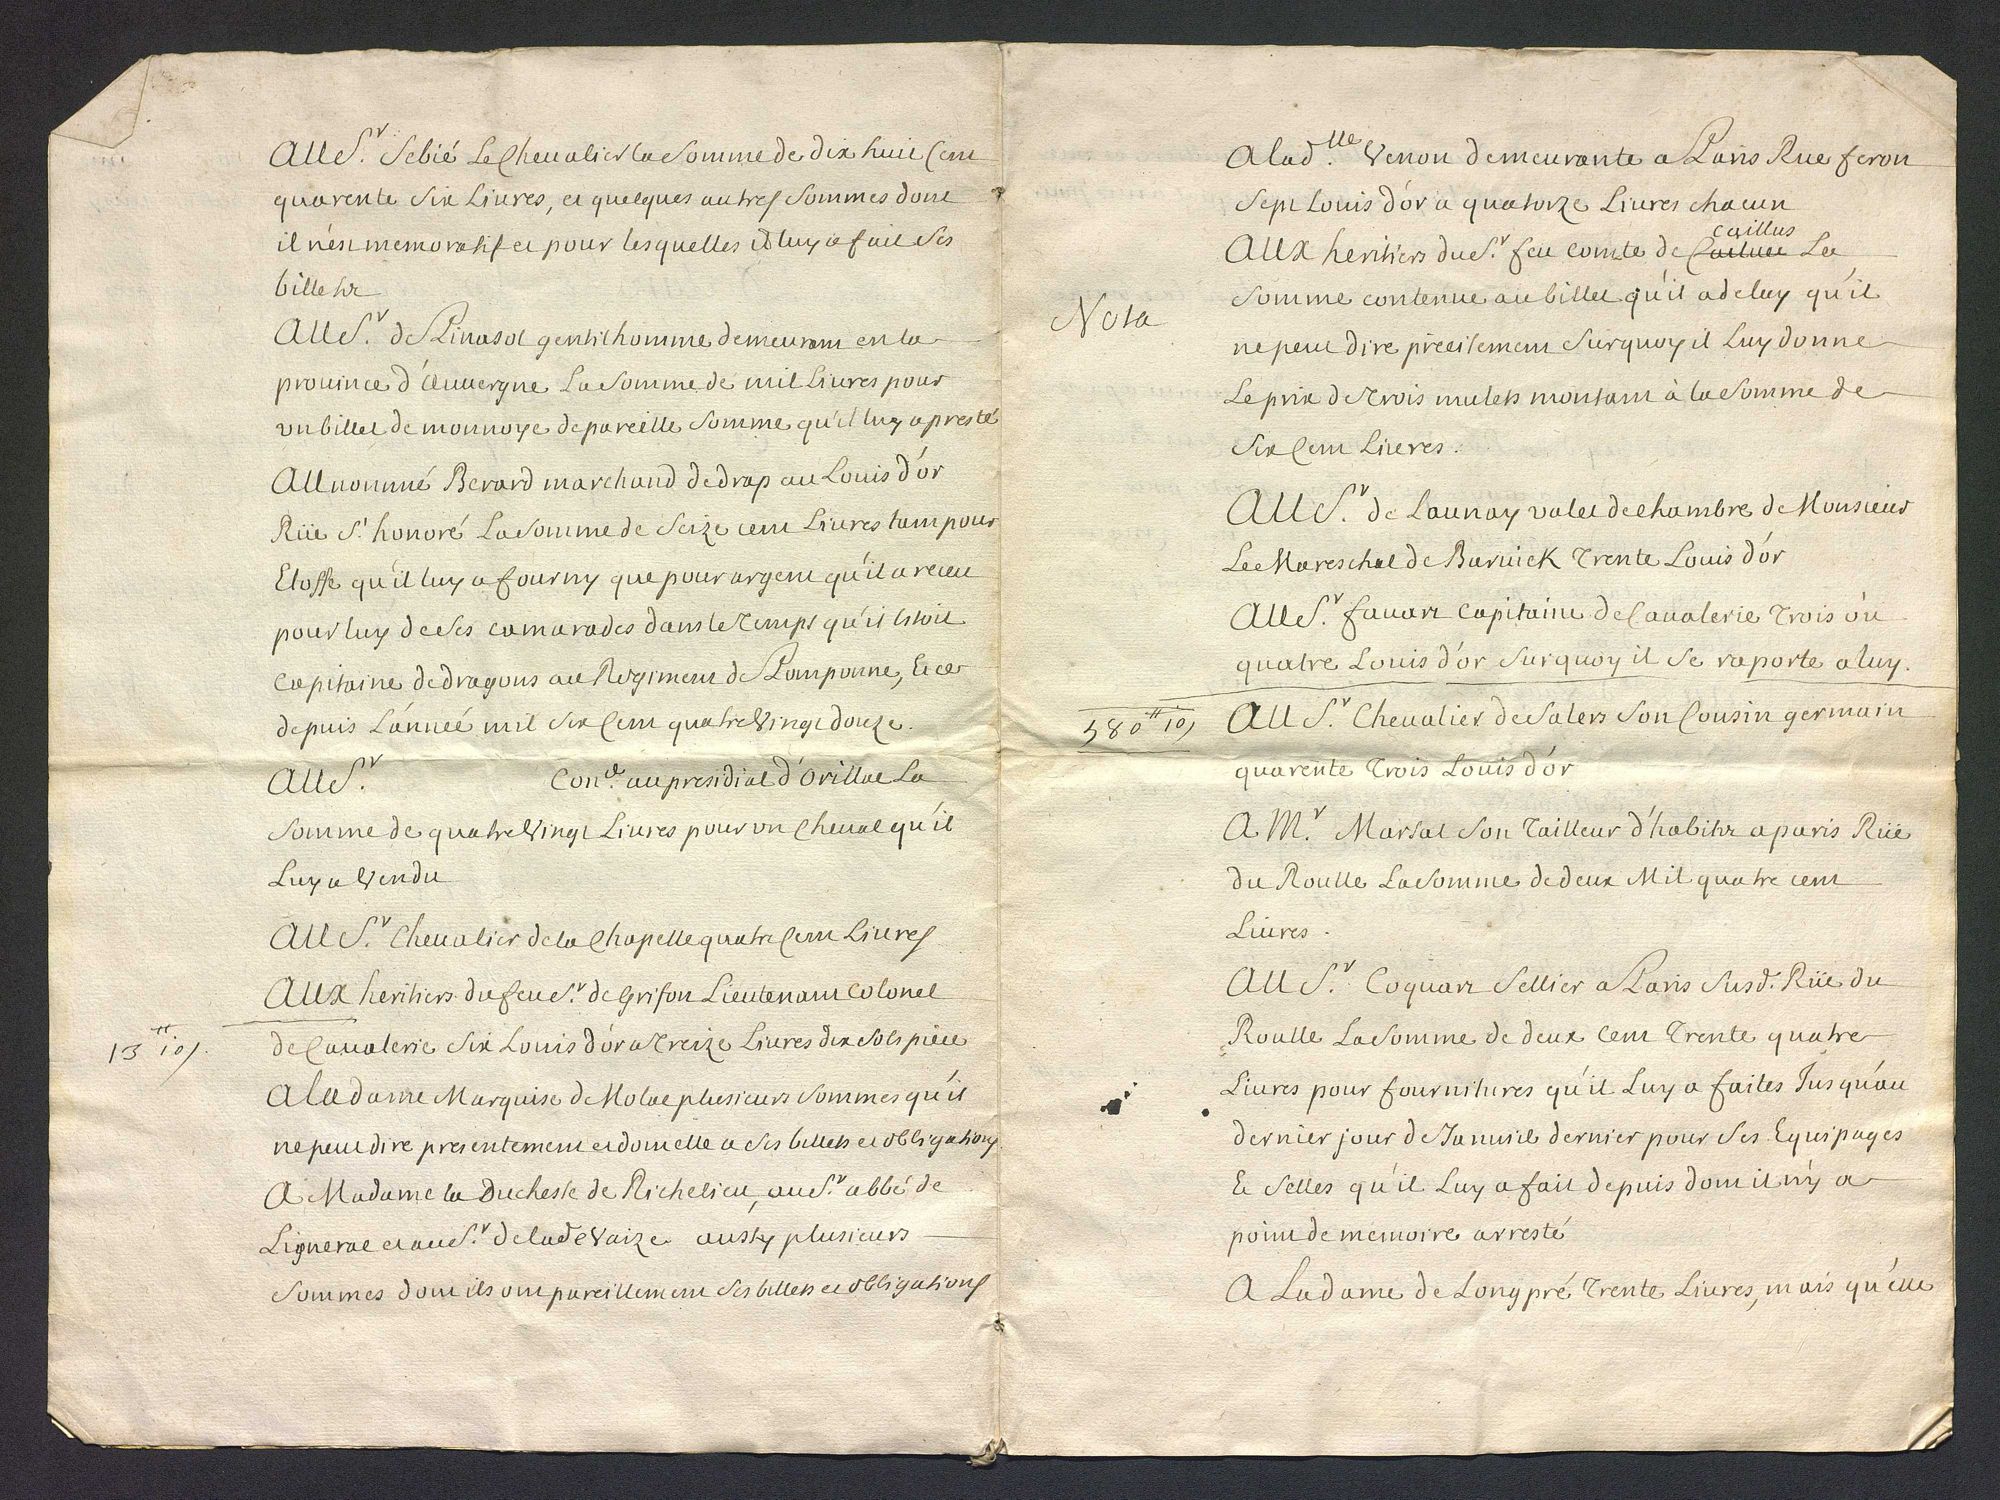 Au S.r Sebié Le Chevalier la Somme de dix huit Cent
quarente Six Livres, et quelques autres Sommes dont
il n'est memoratif et pour lesquelles il luy a fait Ses
billets
Au S.r de Pinasol gentilhomme demeurant en la
province d'Auvergne La Somme de mil Livres pour
un billet de monnoye de pareille Somme qu'il luy a presté
Au nommé Berard marchand de drap au Louis d'or
Rüe S.t honoré La Somme de Seize cent Livres tant pour
Etoffe qu'il luy a fourny que pour argent qu'il a receu
pour luy de Ses camarades dans le Temps qu'il Estoit
Capitaine de dragons au Regiment de Pomponne, Et ce
depuis L'année mil Six Cent quatre Vingt douze.
Au S.r Con.er au presidial d'Orillac La
Somme de quatre Vingt Livres pour un Cheval qu'il
Luy a Vendu
Au S.r Chevalier de la Chapelle quatre Cent Livres
Aux heritiers du feu S.r de Grifon Lieutenant Colonel
13tt 10s. de Cavalerie Six Louis d'or a Treize Livres dix Sols piece
A la dame Marquise de Molac plusieurs Sommes qu'il
ne peut dire presentement et dont elle a Ses billets et obligations
A Madame la Duchesse de Richelieu, au S.r abbé de
Lignerac et au S.r de lade Vaize aussy plusieurs
Sommes dont ils ont pareillement Ses billets et obligations
A lad.lle Venon demeurante a Paris Rue feron
Sept Louis d'or a quatorze Livres chacun
caillus
Aux heritiers du S.r feu Comte de La
Nota
Somme contenue au billet qu'il a de luy qu'il
ne peut dire precisement Surquoy il Luy donne
Le prix de Trois mulets montant à la Somme de
Six Cent Livres.
Au S.r de Launay valet de chambre de Monsieur
Le Mareschal de Barwick Trente Louis d'or
Au S.r favart Capitaine de Cavalerie Trois ou
quatre Louis d'or Surquoy il Se raporte a luy.
580tt 10s Au S.r Chevalier de Salers Son Cousin germain
quarente Trois Louis d'or
A M.r Marsal Son Tailleur d'habits a paris Rüe
du Roulle La Somme de deux Mil quatre cent
Livres.
Au S.r Coquart Sellier a Paris Susd. Rüe du
Roulle La Somme de deux Cent Trente quatre
Livres pour fournitures qu'il Luy a faites Jusqu'au
dernier jour de Janvier dernier pour Ses Equipages
Et Selles qu'il Luy a fait depuis dont il n'y a
point de memoire arresté
A La dame de Longpré Trente Livres, mais qu'elle